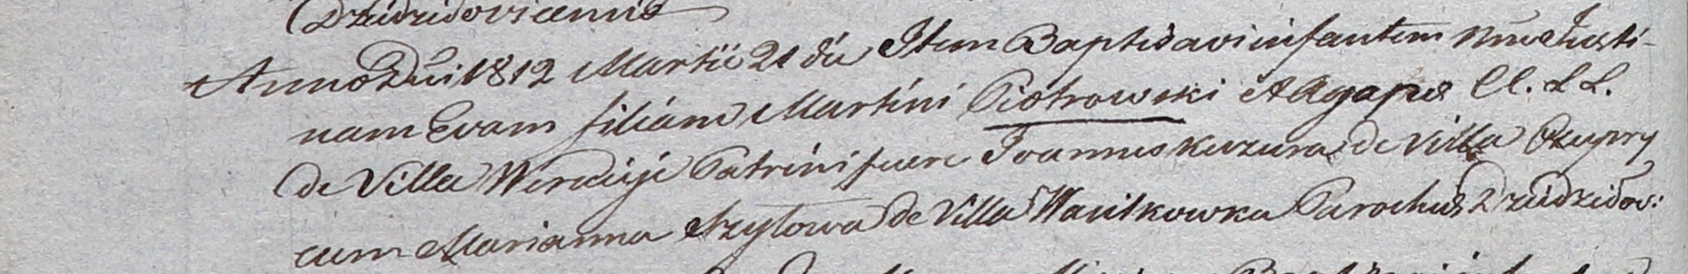 Dzidzidovicensis
Anno Dni 1812 Martii 21 die Item Baptisavi infantem nñe Justi-
nam Evam filiam Martini Piotrowski et Agapes Cl. L L.
de Villa Patrini fuere Joannes Kuzura de Villa
cum Marianna Szytowa de Villa Wasilkowka Parochus Dzidzidov: